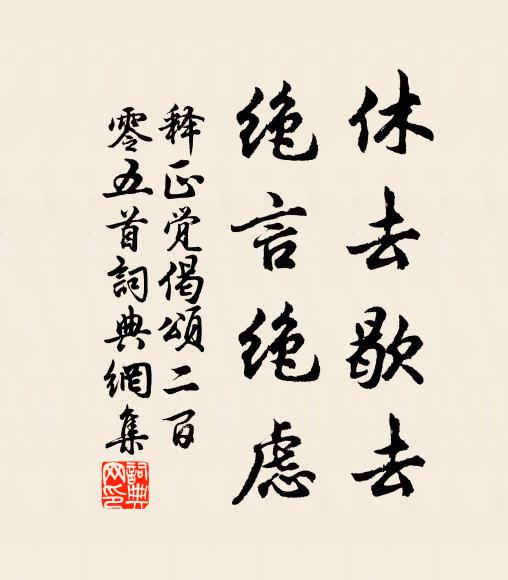 休去歇去
绝言绝虑
释正觉偈颂二百
零五首詞典網集
詞典
网印